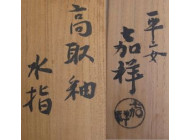 高取釉
水指
平安
嘉祥